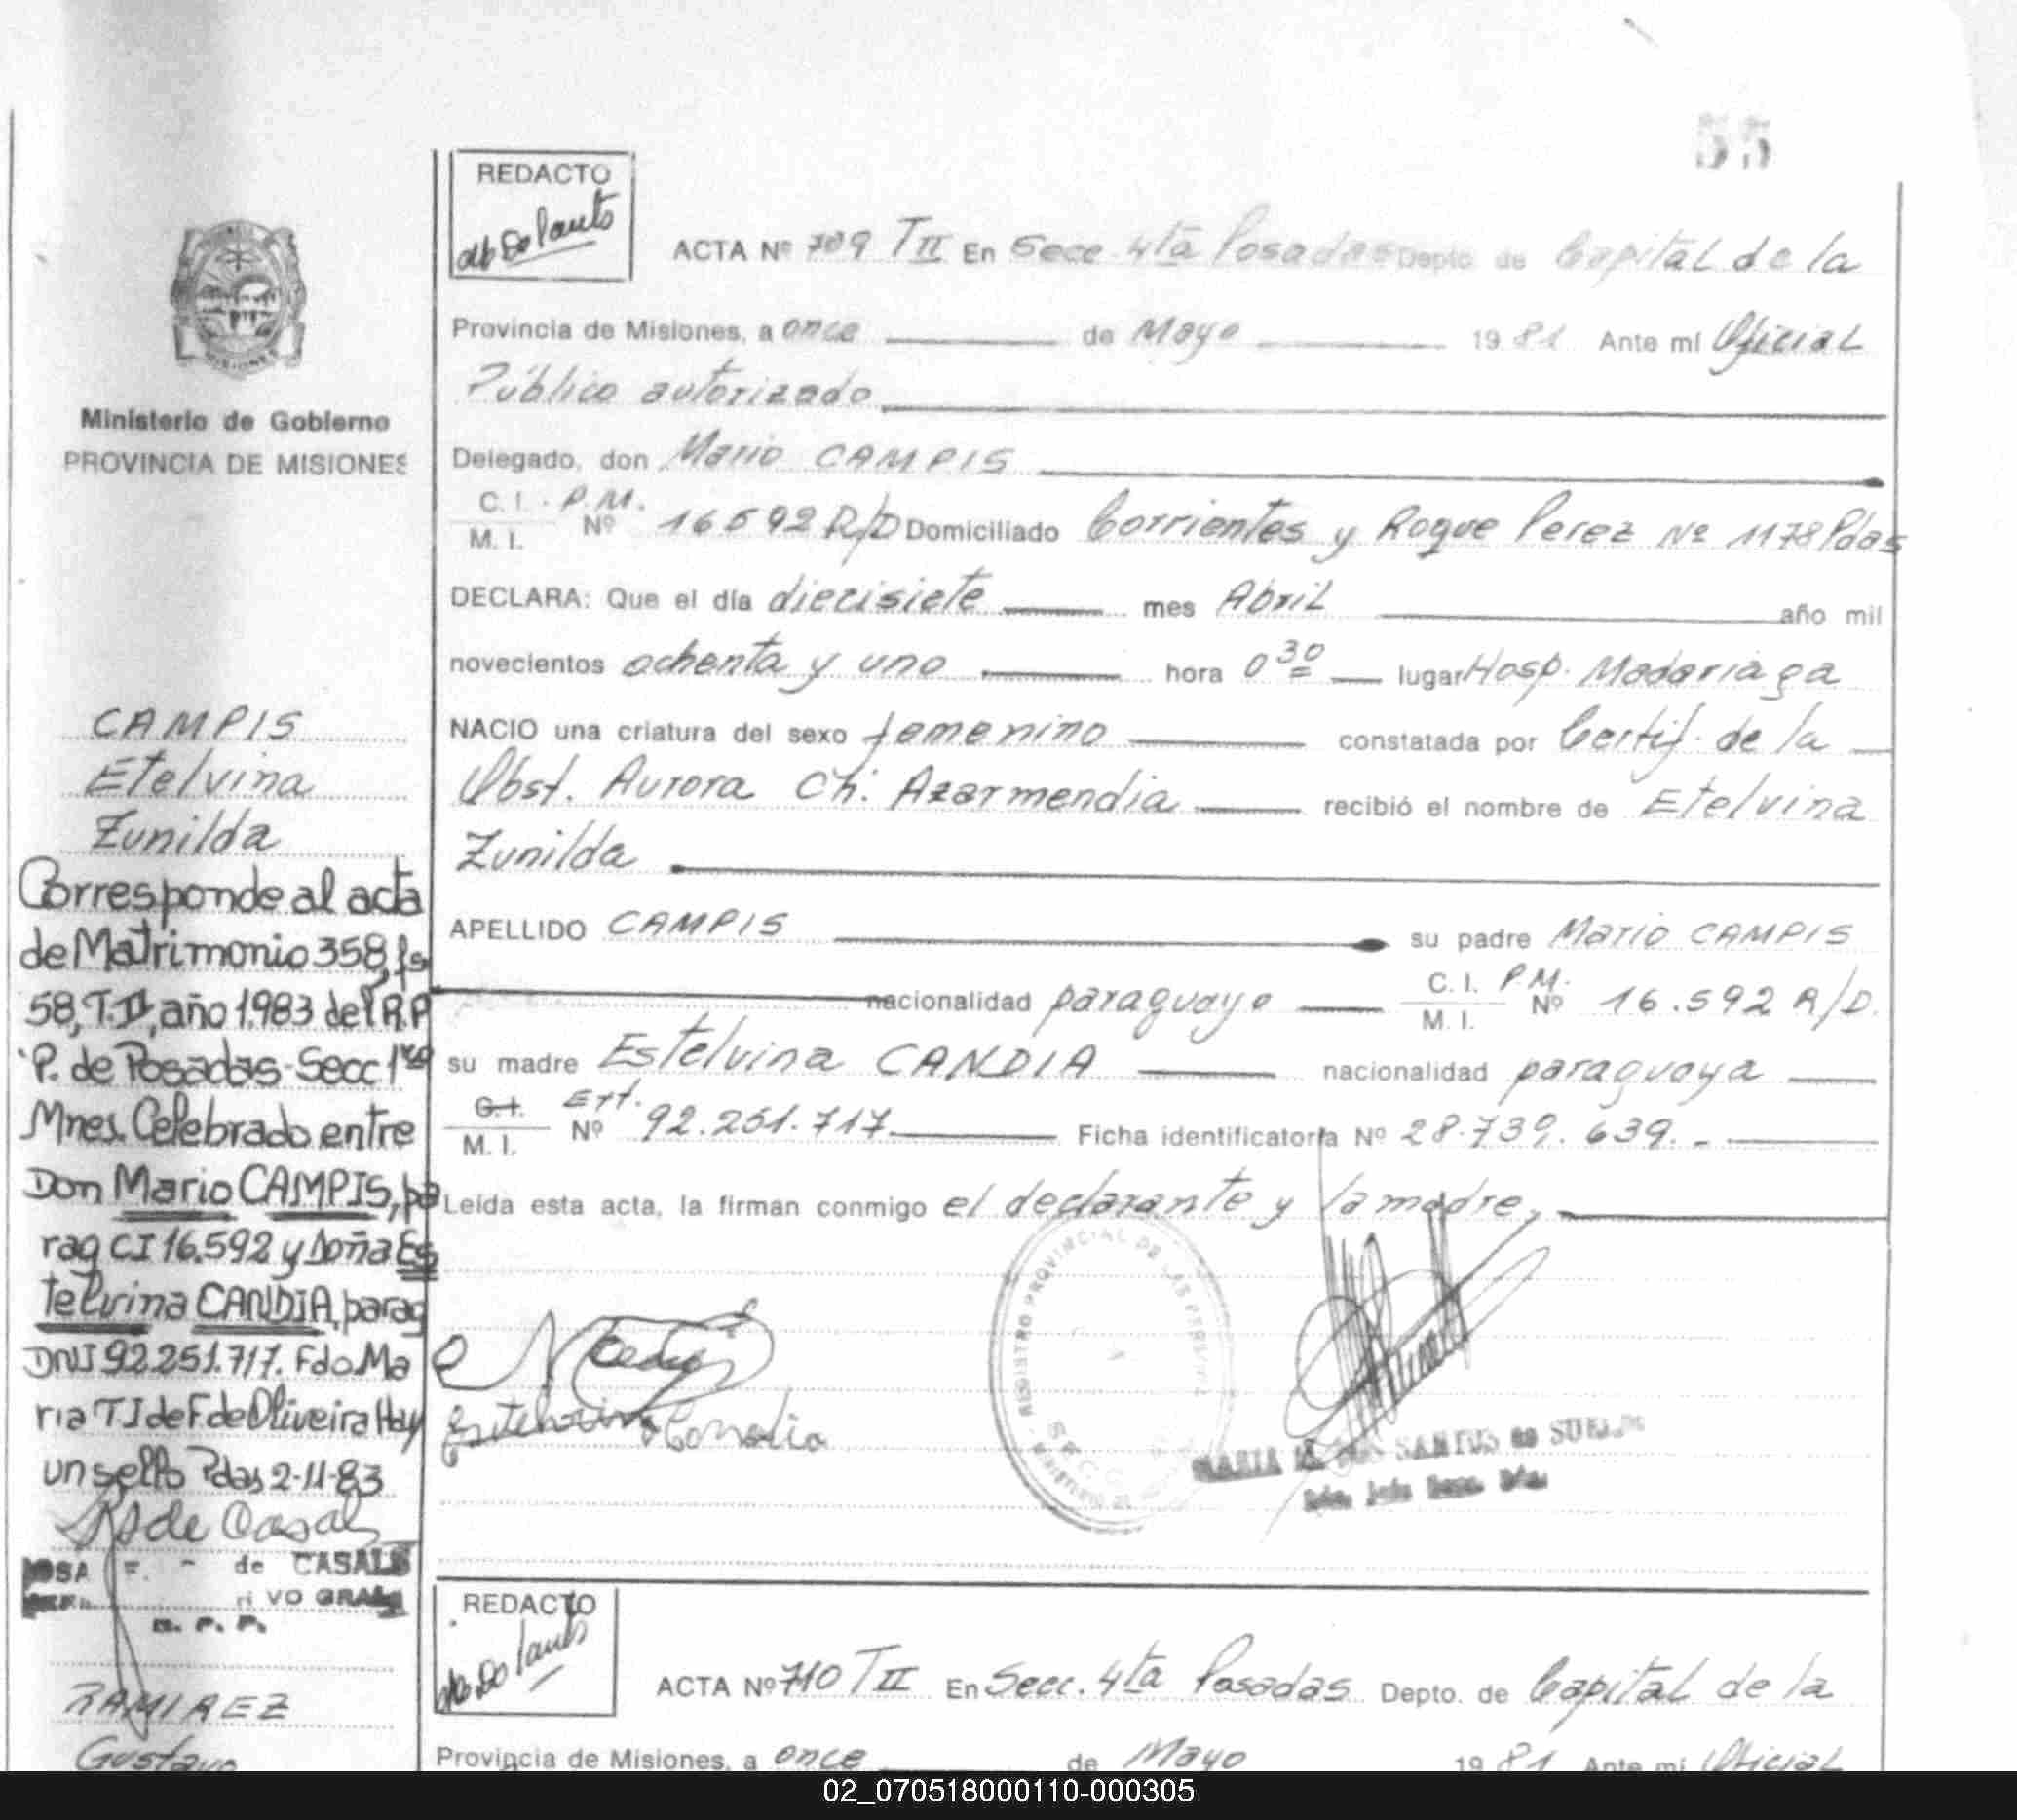 55
REDACTO
ACTA Nº 709 T II En Secc. 4ta Posadas Depto de Capital de la
Provincia de Misiones, a once de Mayo 1981 Ante mí Oficial
Público autorizado
Delegado, don Mario CAMPIS
C. I. P.M.
M. I. Nº 16592 R/D Domiciliado Corrientes y Roque Perez Nº 1178 Pdas
DECLARA: Que el día diecisiete mes Abril año mil
novecientos ochenta y uno hora 0 30 lugar Hosp. Madariaga
NACIO una criatura del sexo femenino constatada por Certif. de la
Obst. Aurora Ch. Azarmendia recibió el nombre de Etelvina
Zunilda
APELLIDO CAMPIS su padre Mario CAMPIS
nacionalidad paraguayo C. I. P.M. M. I. Nº 16.592 R/D.
su madre Estelvina CANDIA nacionalidad paraguaya
C.I. Ext.
M. I. Nº 92.251.717 Ficha identificatoria Nº 28.739.639.-
Leída esta acta, la firman conmigo el declarante y la madre,
REGISTRO PROVINCIAL DE LAS PERSONAS
MARIA DOS SANTOS de
Ministerio de Gobierno
PROVINCIA DE MISIONES
CAMPIS
Etelvina
Zunilda
Corresponde al acta
de Matrimonio 358, fs
58, T.II, año 1.983 del R.P
P. de Posadas-Secc 1ra
Mnes. Celebrado entre
Don Mario CAMPIS, pa
rag CI 16.592 y Doña Es
telvina CANDIA, parag
DNI 92.251.717. Fdo. Ma
ria T.J de F. de Oliveira Hay
un sello Pdas 2-11-83
de Casals
de CASALS
VO GRAL
R. P. P.
RAMIREZ
Gustavo
REDACTO
ACTA Nº 710 T II En Secc. 4ta Posadas Depto. de Capital de la
Provincia de Misiones, a once de Mayo 1981 Ante mí Oficial
02_070518000110-000305